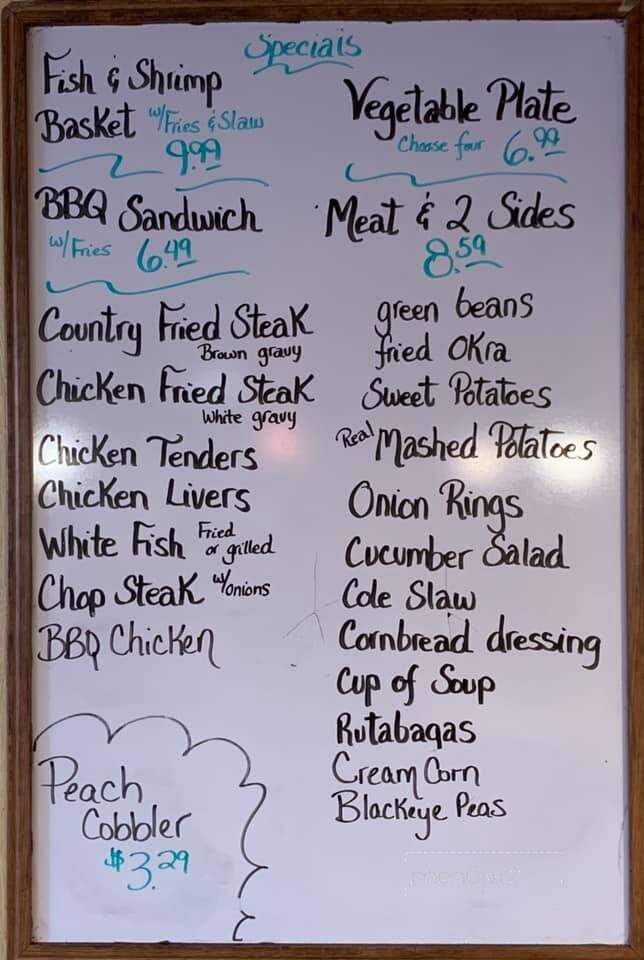 Specials
Fish & Shrimp
Basket w/Fries & Slaw
9.99
BBQ Sandwich
w/Fries 6.49
Country Fried Steak
Brown gravy
Chicken Fried Steak
White gravy
Chicken Tenders
Chicken Livers
White Fish Fried or grilled
Chop Steak w/onions
BBQ Chicken
Peach
Cobbler
$3.29
Vegetable Plate
Choose four 6.99
Meat & 2 Sides
8.59
green beans
fried Okra
Sweet Potatoes
Real Mashed Potatoes
Onion Rings
Cucumber Salad
Cole Slaw
Cornbread dressing
Cup of Soup
Rutabagas
Cream Corn
Blackeye Peas